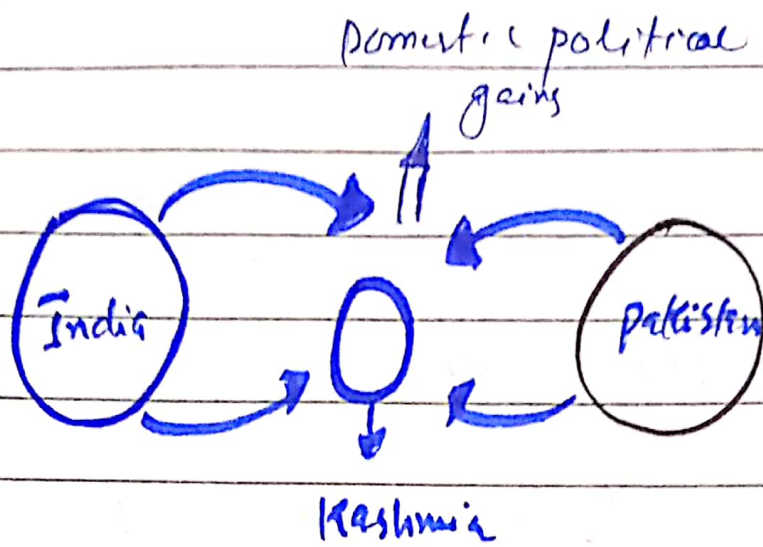 Domestic political
gains
India
Pakistan
Kashmir